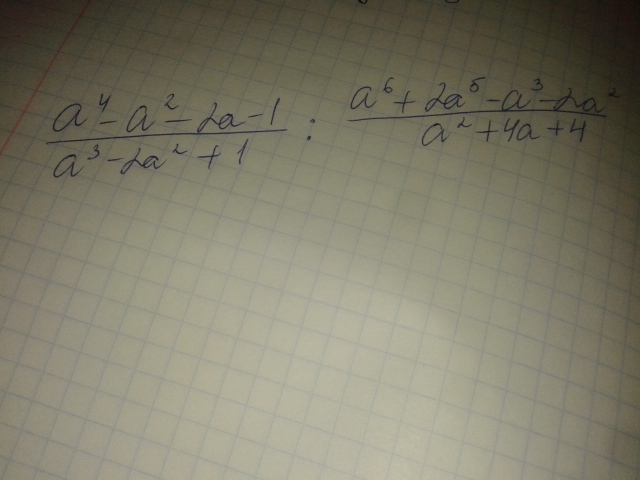 a⁴ - a² - 2a - 1 / a³ - 2a² + 1 : a⁶ + 2a⁵ - a³ - 2a² / a² + 4a + 4